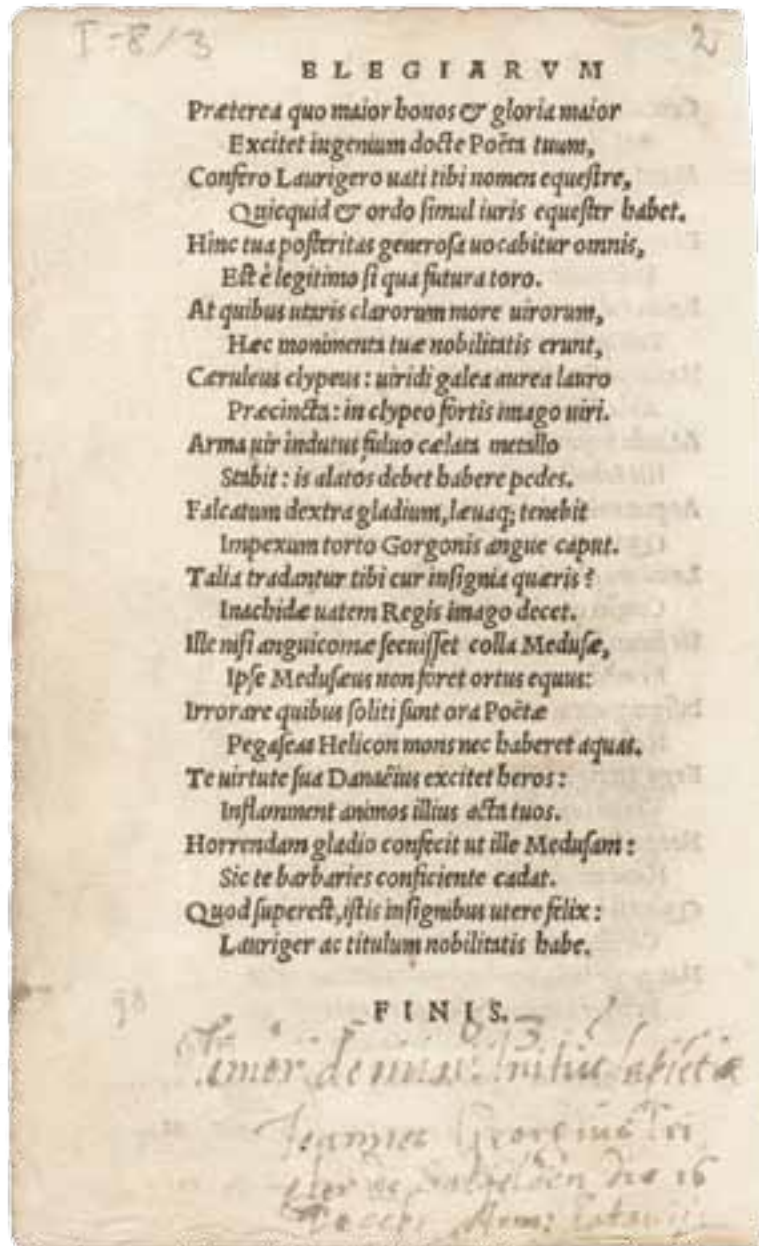 I-8/3 2
ELEGIARVM
Præterea quo maior honos & gloria maior
Excitet ingenium docte Poëta tuum,
Confero Laurigero uati tibi nomen equeſtre,
Quicquid & ordo ſimul iuris equeſter habet.
Hinc tua poſteritas generoſa uocabitur omnis,
Eſt è legitimo ſi qua futura toro.
At quibus utaris clarorum more uirorum,
Hæc monimenta tuæ nobilitatis erunt,
Cæruleus clypeus: uiridi galea aurea lauro
Præcincta: in clypeo fortis imago uiri.
Arma uir indutus fuluo cælata metallo
Stabit: is alatos debet habere pedes.
Falcatum dextra gladium, læuaq; tenebit
Impexum torto Gorgonis angue caput.
Talia tradantur tibi cur inſignia quæris?
Inachidæ uatem Regis imago decet.
Ille niſi anguicomæ ſecuiſſet colla Meduſæ,
Ipſe Meduſæus non foret ortus equus:
Irrorare quibus ſoliti ſunt ora Poëtæ
Pegaſeas Helicon mons nec haberet aquas.
Te uirtute ſua Danaëius excitet heros:
Inflamment animos illius acta tuos.
Horrendam gladio confecit ut ille Meduſam:
Sic te barbaries conficiente cadat.
Quod ſupereſt, iſtis inſignibus utere felix:
Lauriger ac titulum nobilitatis habe.
FINIS.